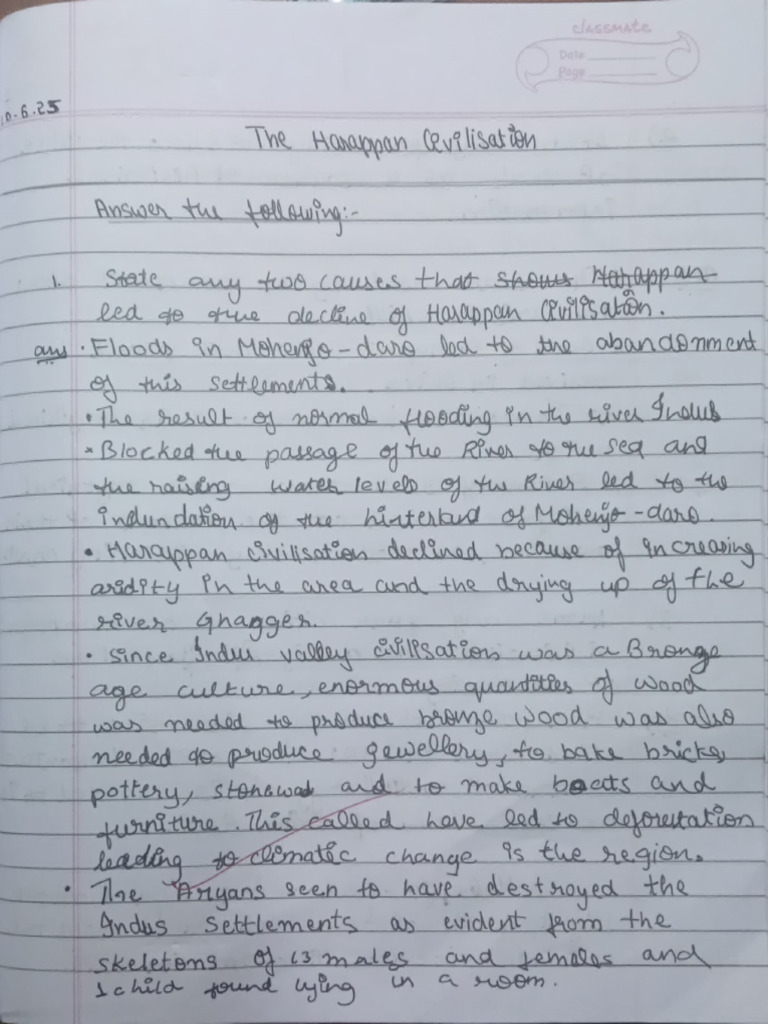 classmate
Date
Page
0.6.25
The Harappan Civilisation
Answer the following:-
1. State any two causes that shows Harappan
led to the decline of Harappan Civilisation.
ans • Floods in Mohenjo-daro led to the abandonment
of this settlements.
• The result of normal flooding in the river Indus
• Blocked the passage of the River to the sea and
the raising water levels of the River led to the
indundation of the hinterland of Mohenjo-daro.
• Harappan civilisation declined because of increasing
aridity in the area and the drying up of the
river Ghagger.
• since Indus valley civilisation was a Bronze
age culture, enormous quantities of wood
was needed to produce bronze wood was also
needed to produce jewellery, to bake bricks,
pottery, and to make boats and
furniture. This called have led to deforestation
leading to climatic change is the region.
• The Aryans seen to have destroyed the
Indus Settlements as evident from the
skeletons of 13 males and females and
1 child found lying in a room.